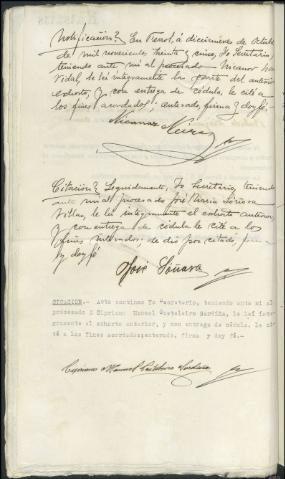 Notificación? En Ferrol, á diecinueve de Octubre
de mil novecientos treinta y cinco, Yo Secretario,
teniendo ante mi al procesado Nicanor
Vidal, le leí integramente la parte del anterior
exhorto, y con entrega de cédula, le cité a
los fines acordados: enterado, firma y doy fé.
Nicanor Neira
Citación? Seguidamente, Yo Secretario, teniendo
ante mi al procesado José María
Villar, le leí integramente el exhorto anterior
y con entrega de cédula le cité a los
fines interesados: se dio por citado firma
y doy fé
José
CITACION.- Acto continuo Yo Secretario, teniendo ante mi al
procesado D Cipriano Manuel Casteleiro Sardiña, le leí integ-
ramente el exhorto anterior, y con entrega de cédula, le ci-
té a los fines acordados;enterado, firma y doy fé.-
Cipriano Manuel Casteleiro Sardiña